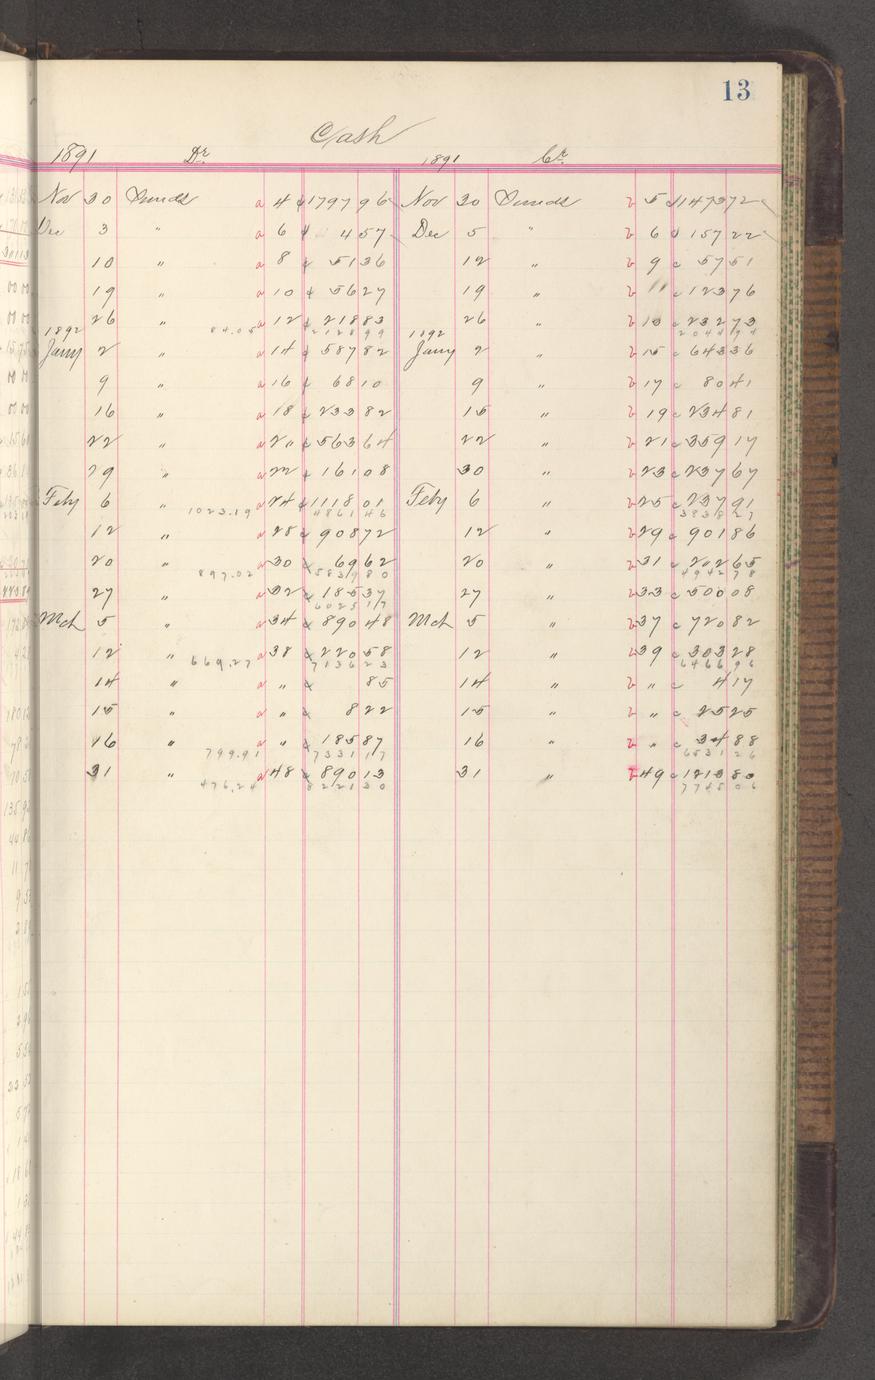 13
Cash
1891 Dr 1891 Cr
Nov 30 Sunds a 4 ¢ 1797 96 Nov 30 Sunds b 5 ¢ 1473 72
Dec 3 " a 6 ¢ 4 57 Dec 5 " b 6 ¢ 157 22
10 " a 8 ¢ 51 36 12 " b 9 c 57 51
19 " a 10 ¢ 56 27 19 " b 11 c 123 76
26 " a 12 ¢ 218 83 26 " b 13 c 232 73
1892 84.05 2128 99 1892 2044 94
Jany 2 " a 14 ¢ 587 82 Jany 2 " b 15 c 643 36
9 " a 16 ¢ 68 10 9 " b 17 c 80 41
16 " a 18 ¢ 233 82 15 " b 19 c 234 81
22 " a 20 ¢ 563 64 22 " b 21 c 359 17
29 " a 22 ¢ 161 08 30 " b 23 c 237 67
Feby 6 " a 24 ¢ 1118 01 Feby 6 " b 25 c 237 91
1023.19 4861 46 3838 27
12 " a 28 ¢ 908 72 12 " b 29 c 901 86
20 " a 30 ¢ 69 62 20 " b 31 c 202 65
897.02 5839 80 4942 78
27 " a 32 ¢ 185 37 27 " b 33 c 500 08
6025 17
Mch 5 " a 34 ¢ 890 48 Mch 5 " b 37 c 720 82
12 " a 38 ¢ 220 58 12 " b 39 c 303 28
669.27 7136 23 6466 96
14 " a " ¢ 85 14 " b " c 4 17
15 " a " ¢ 8 22 15 " b " c 25 25
16 " a " ¢ 185 87 16 " b " c 34 88
799.91 7331 17 6531 26
31 " a 48 ¢ 890 13 31 " b 49 c 1213 80
476.24 8221 30 7745 06